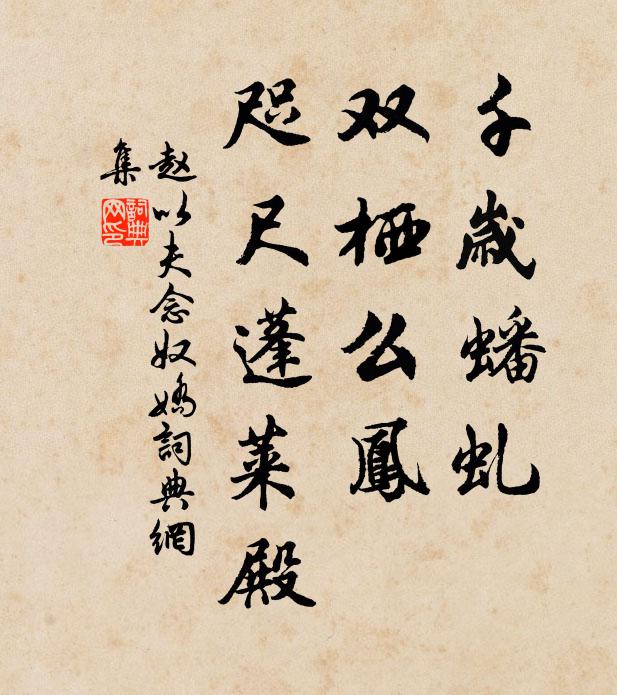 千歲蟠虬
双栖么鳳
咫尺蓬萊殿
赵以夫念奴嬌詞典網
集
詞典
网印